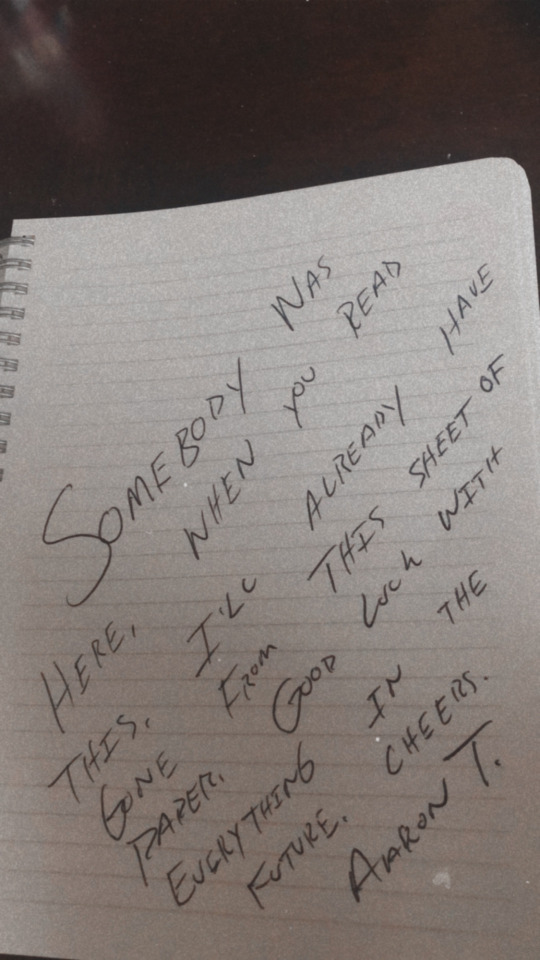 SOMEBODY WAS
HERE, WHEN YOU READ
THIS, I'LL ALREADY HAVE
GONE FROM THIS SHEET OF
PAPER. GOOD LUCK WITH
EVERYTHING IN THE
FUTURE. CHEERS.
AARON T.